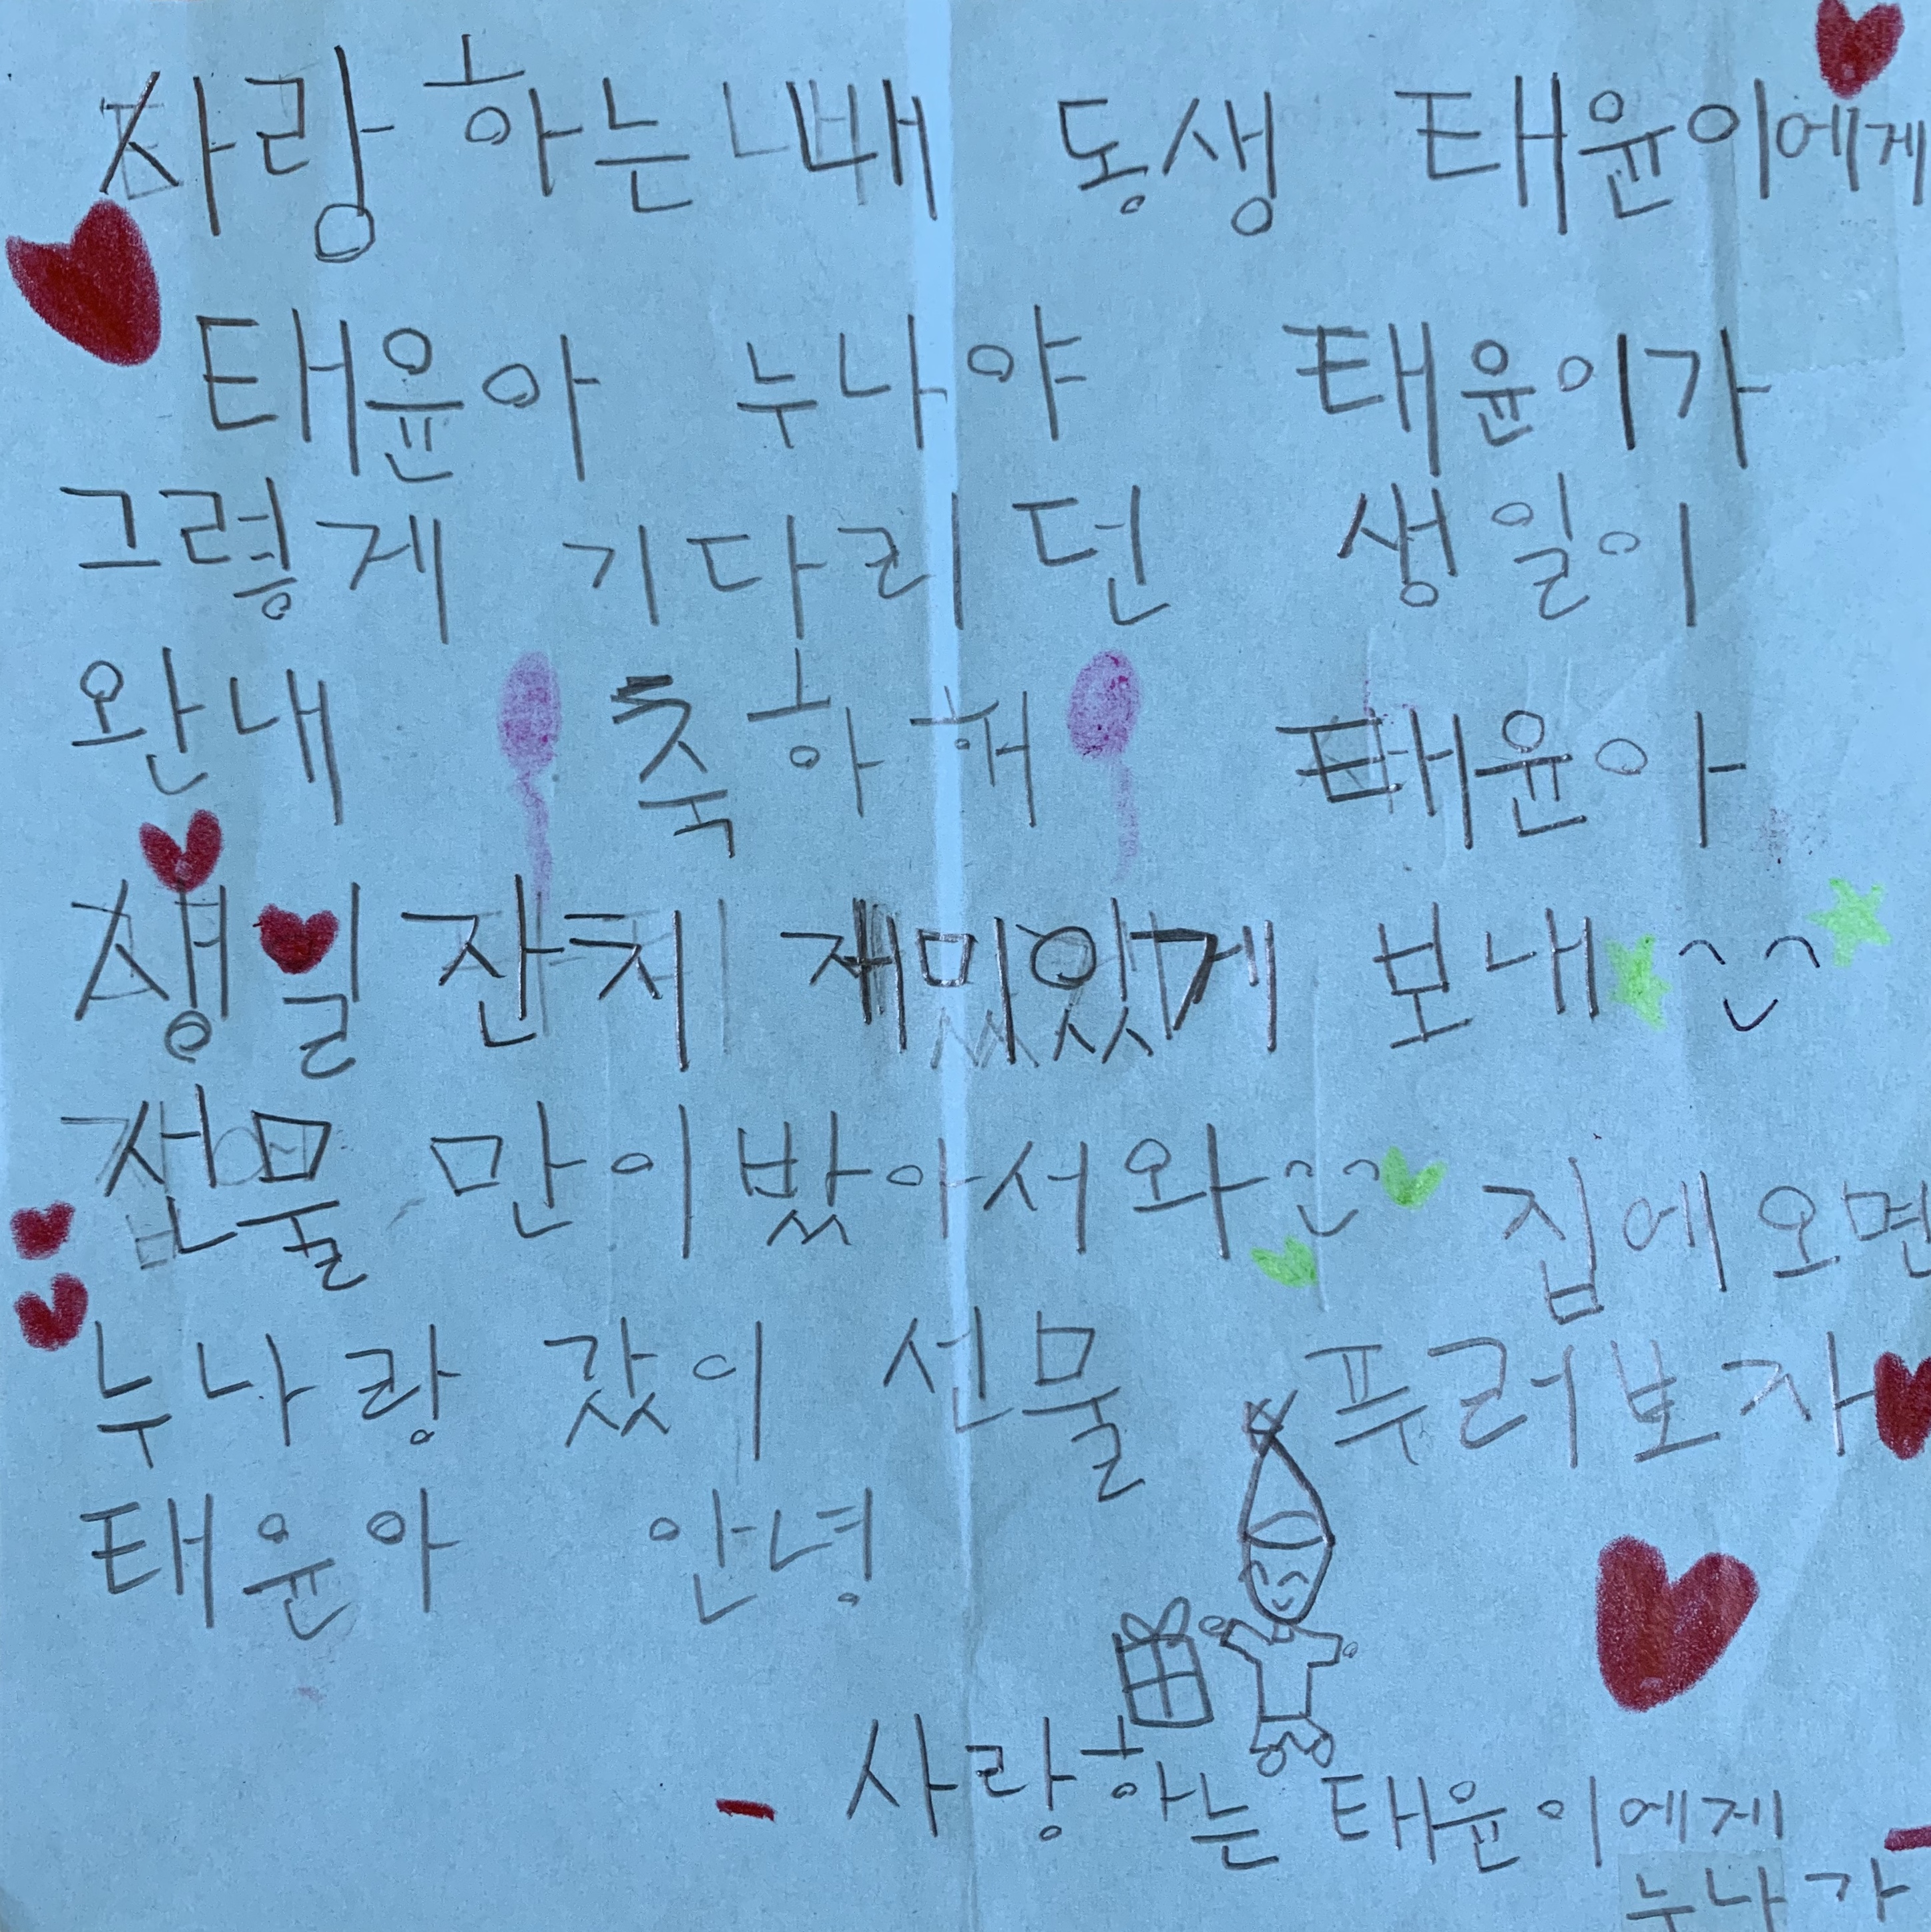 사랑하는 내 동생 태윤이에게
태윤아 누나야 태윤이가
그렇게 기다리던 생일이
완내 축하해 태윤아
생일 잔치 재미있게 보내
선물 만이 밨아서와 집에오면
누나랑 갔이 선물 푸러보자
태윤아 안녕
- 사랑하는 태윤이에게 -
누나가